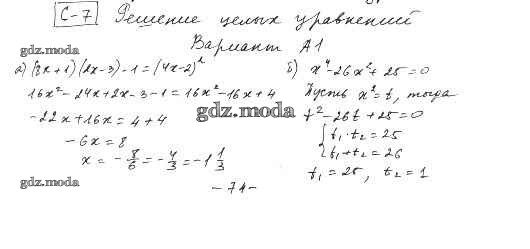 С-7 Решение целых уравнений
Вариант А1
gdz.moda
а) (8x+1)(2x-3)-1=(4x-2)²
16x²-24x+2x-3-1=16x²-16x+4
-22x+16x=4+4
-6x=8
x=-8/6=-4/3=-1 1/3
б) x⁴-26x²+25=0
Пусть x²=t, тогда
gdz.moda
t²-26t+25=0
{t₁·t₂=25
{t₁+t₂=26
t₁=25, t₂=1
gdz.moda
-74-